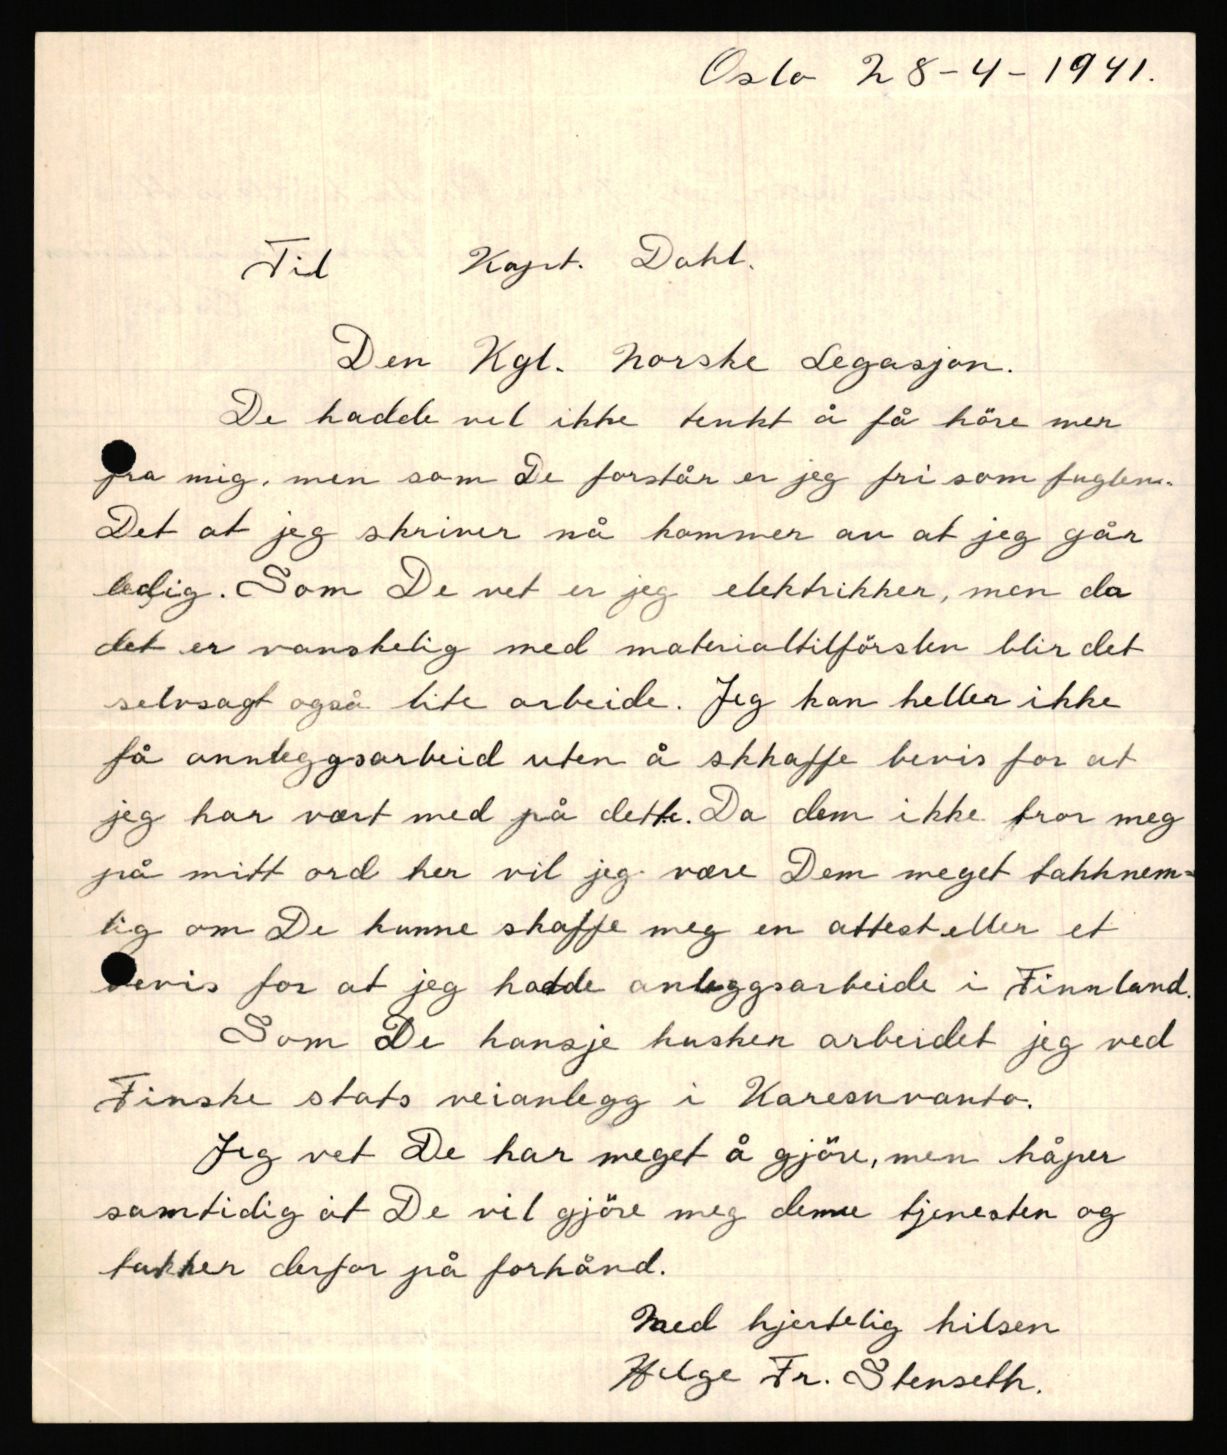 Oslo 28-4-1941.
Til Kapt. Dahl.
Den Kgl. Norske Legasjon.
De hadde vel ikke tenkt å få höre mer
fra mig. men som De forstår er jeg fri som fuglen.
Det at jeg skriver nå kommer av at jeg går
ledig. Som De vet er jeg elektrikker, men da
det er vanskelig med materialtilförslen blir det
selvsagt også lite arbeide. Jeg kan heller ikke
få annleggsarbeid uten å skkaffe bevis for at
jeg har vært med på dette. Da dem ikke tror meg
på mitt ord her vil jeg være Dem meget takknem=
lig om De kunne skaffe meg en attest eller et
bevis for at jeg hadde anleggsarbeide i Finnland.
Som De kansje husker arbeidet jeg ved
Finske stats veianlegg i Karesuvanto.
Jeg vet De har meget å gjöre, men håper
samtidig at De vil gjöre meg denne tjenesten og
takker derfor på forhånd.
Med hjertelig hilsen
Helge Fr. Stenseth.